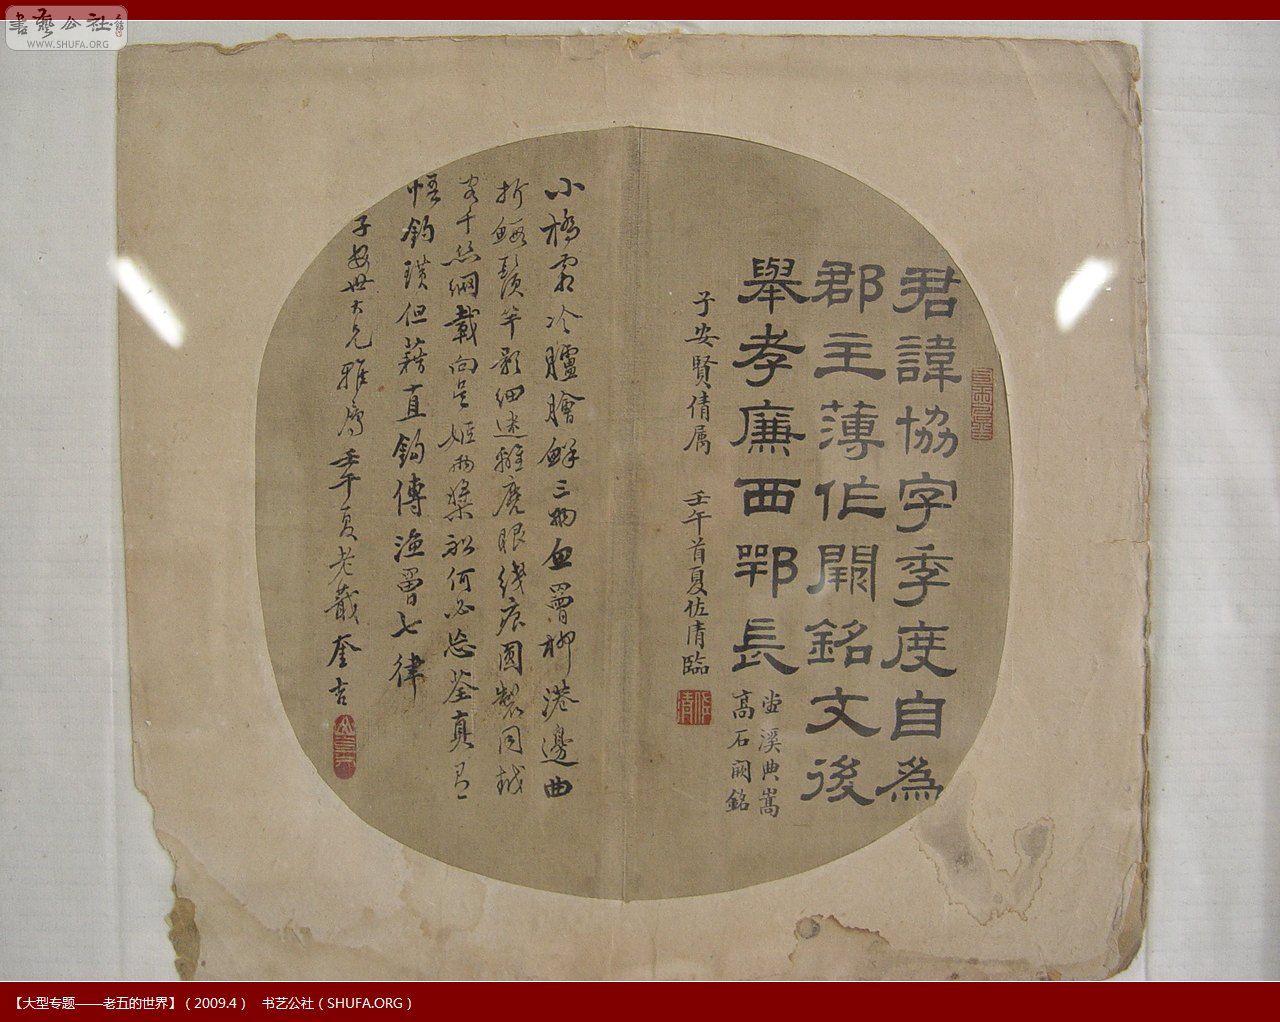 書藝公社
WWW.SHUFA.ORG
君諱協字季度自為
郡主薄作闕銘文後
舉孝廉西鄂長
堂溪典嵩
高石闕銘
子安賢倩属 壬午首夏佐清臨
小橋霜冷臚膾鮮三物血罾柳港邊曲
折鰕鬚竿影細迷離魔眼綫痕圓製同越
客千絲網載向吳姬兩槳船何必忘荃真
悟鈎璜但藉直鈎傳漁罾七律
子安世大兄雅属壬午夏老戴奎吉
【大型专题——老五的世界】（2009.4） 书艺公社（SHUFA.ORG）